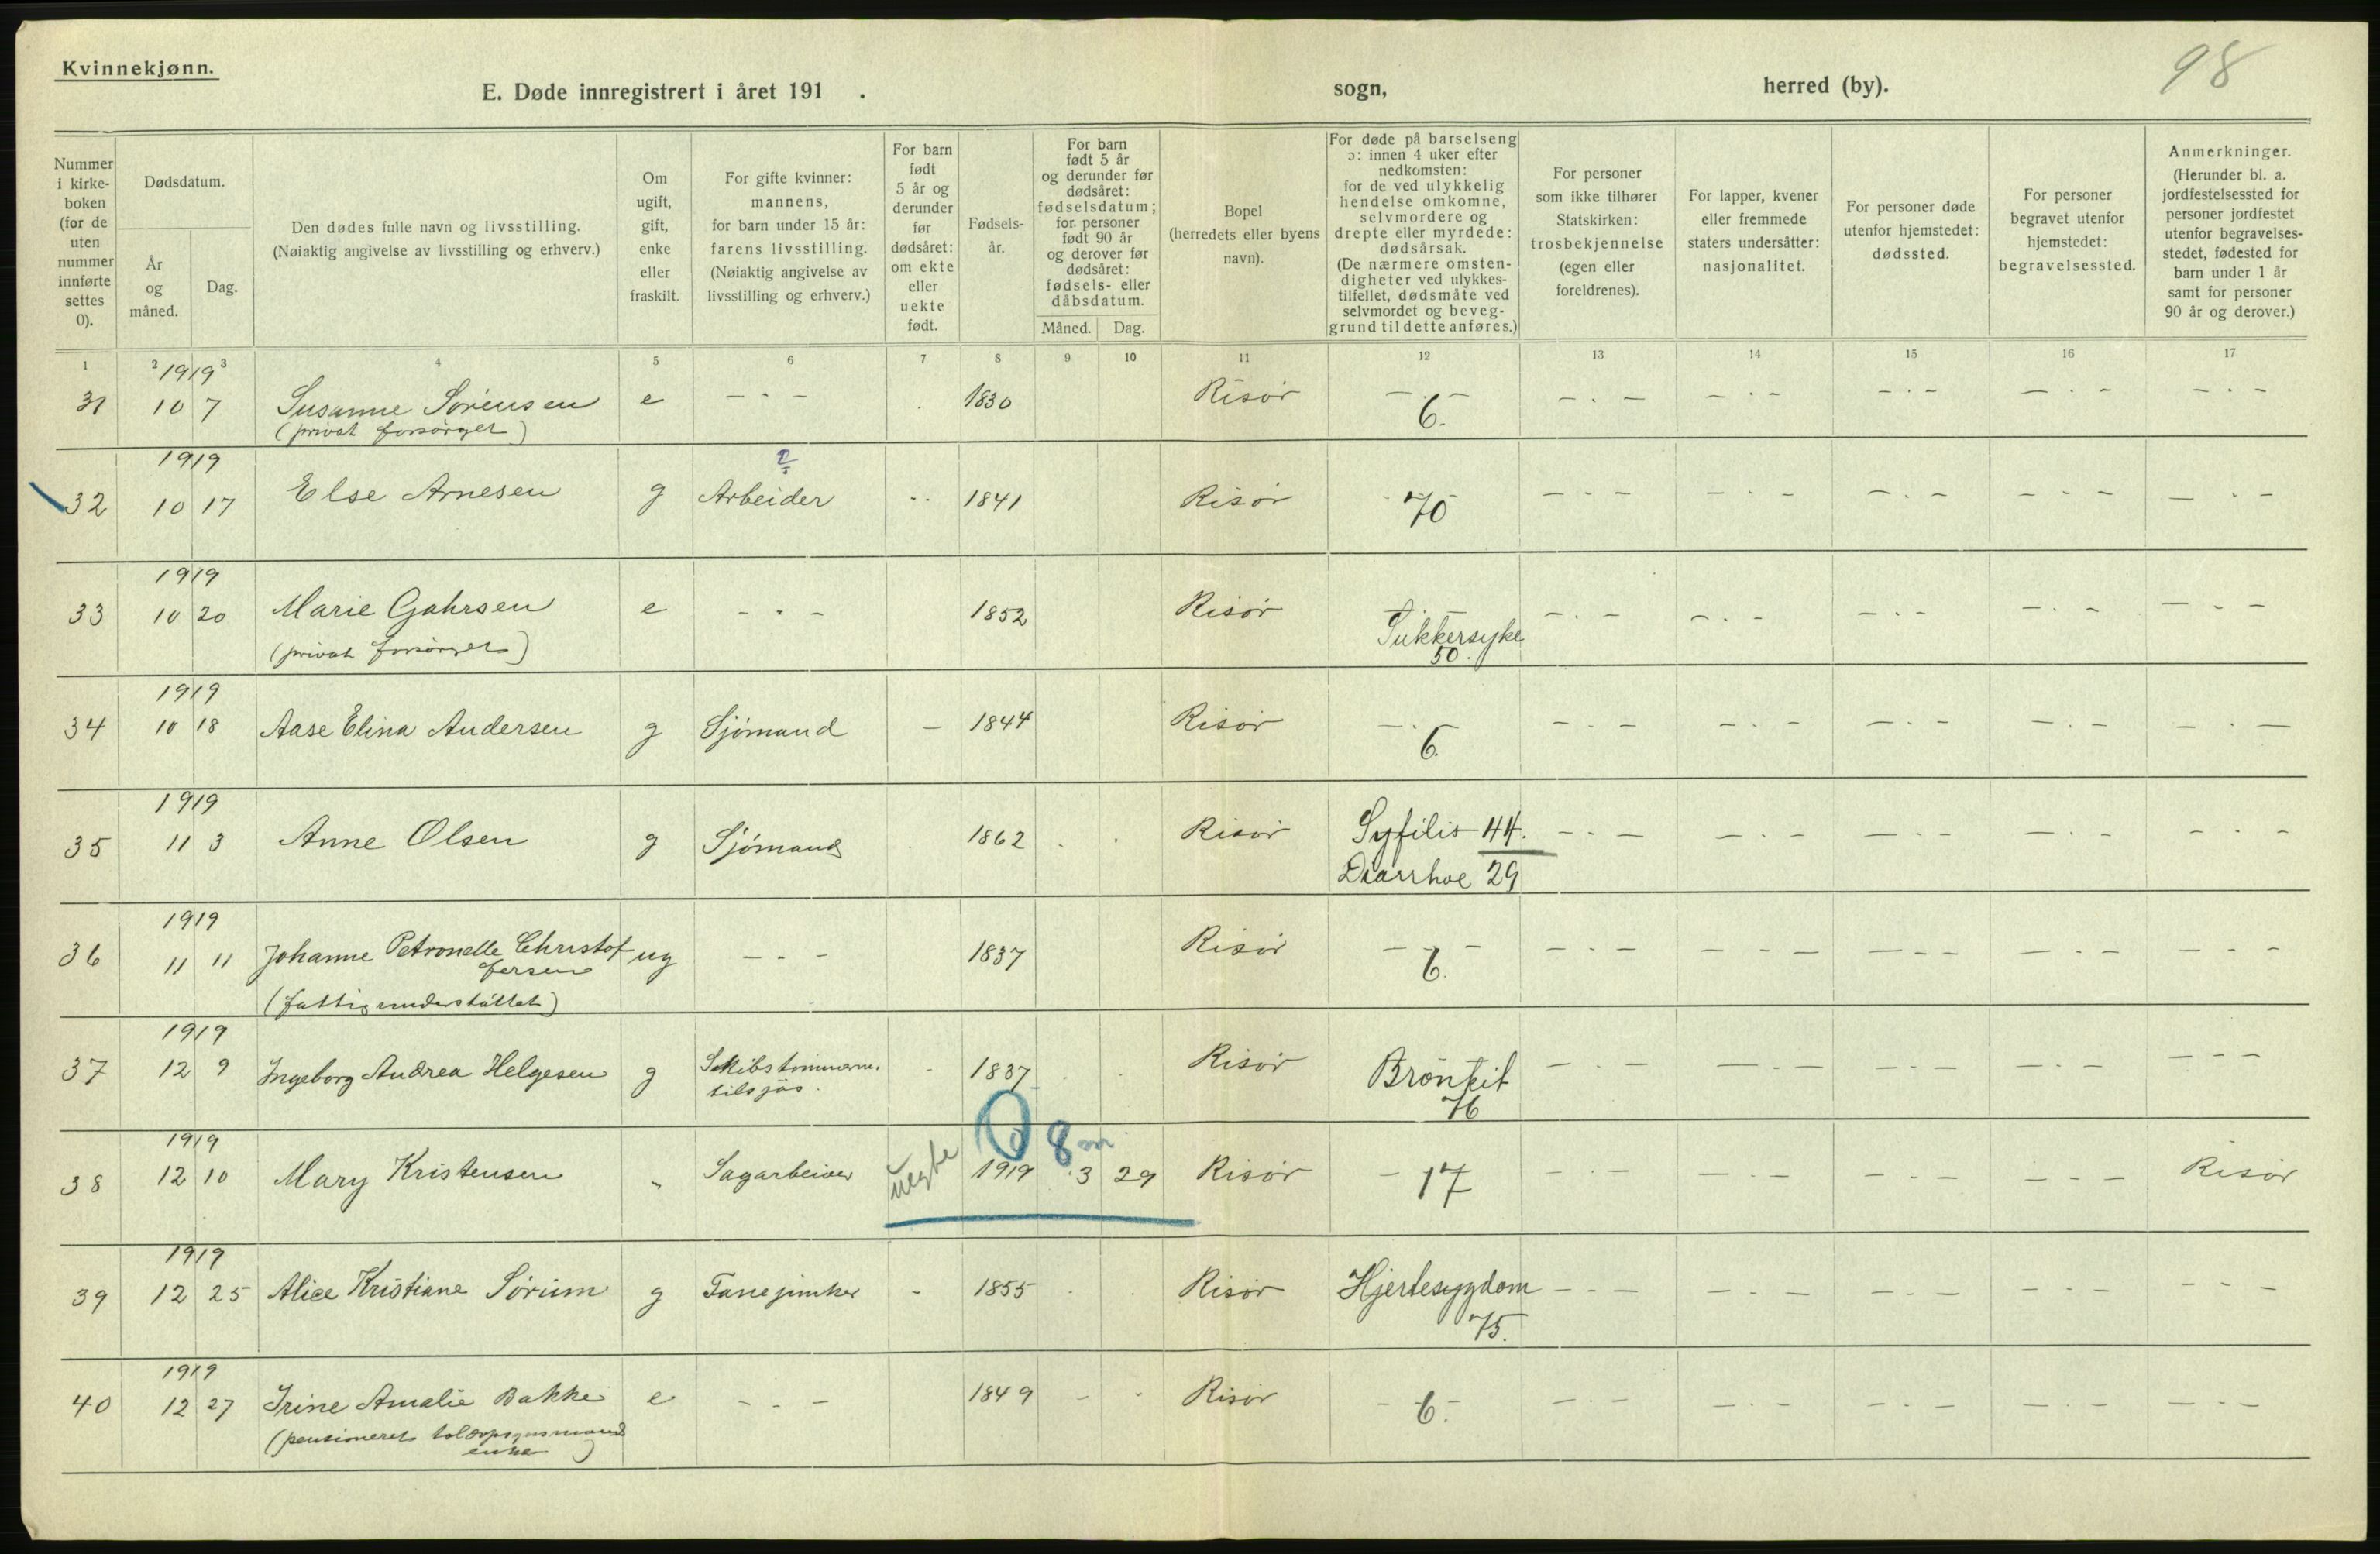 Kvinnekjønn.
98
E. Døde innregistrert i året 191 . sogn, herred (by).
Nummer i kirke-boken (for de uten nummer innførte settes 0).
Dødsdatum.
År og måned.
Dag.
Den dødes fulle navn og livsstilling.
(Nøiaktig angivelse av livsstilling og erhverv.)
Om ugift, gift, enke eller fraskilt.
For gifte kvinner: mannens, for barn under 15 år: farens livsstilling. (Nøiaktig angivelse av livsstilling og erhverv.)
For barn født 5 år og derunder før dødsåret: om ekte eller uekte født.
Fødsels-år.
For barn født 5 år og derunder før dødsåret: fødselsdatum; for personer født 90 år og derover før dødsåret: fødsels- eller dåbsdatum.
Måned. Dag.
Bopel (herredets eller byens navn).
For døde på barselseng ɔ: innen 4 uker efter nedkomsten: for de ved ulykkelig hendelse omkomne, selvmordere og drepte eller myrdede: dødsårsak. (De nærmere omsten-digheter ved ulykkes-tilfellet, dødsmåte ved selvmordet og beveg-grund til dette anføres.)
For personer som ikke tilhører Statskirken: trosbekjennelse (egen eller foreldrenes).
For lapper, kvener eller fremmede staters undersåtter: nasjonalitet.
For personer døde utenfor hjemstedet: dødssted.
For personer begravet utenfor hjemstedet: begravelsessted.
Anmerkninger. (Herunder bl. a. jordfestelsessted for personer jordfestet utenfor begravelses-stedet, fødested for barn under 1 år samt for personer 90 år og derover.)
1 2 3 4 5 6 7 8 9 10 11 12 13 14 15 16 17
1919
31 10 7 Susanne Sørensen e - - - 1830 Risør 6.
(privat forsørget)
1919
32 10 17 Else Arnesen g Arbeider 1841 Risør 70
1919
33 10 20 Marie Gahrsen e - - - 1852 Risør Sukkersyke
(privat forsørget) 50.
1919
34 10 18 Aase Elina Andersen g Sjømand - 1844 Risør 6.
1919
35 11 3 Anne Olsen g Sjømand 1862 Risør Syfilis 44.
Diarrhoe 29
1919
36 11 11 Johanne Petronelle Christof ug - - - 1837 Risør 6.
fersen
(fattigunderstøttet)
1919
37 12 9 Ingeborg Andrea Helgesen g Skibstømmerm. - 1837 Risør Bronkit
tilsjøs. 76
1919 0 8 m
38 12 10 Mary Kristensen " Sagarbeider uegte 1919 3 29 Risør 17 Risør
1919
39 12 25 Alice Kristiane Sørum g - 1855 Risør Hjertesygdom
75.
1919
40 12 27 Irine Amalie Bakke e - - - 1849 Risør 6.
(pensioneret toldopsynsmand
enke)